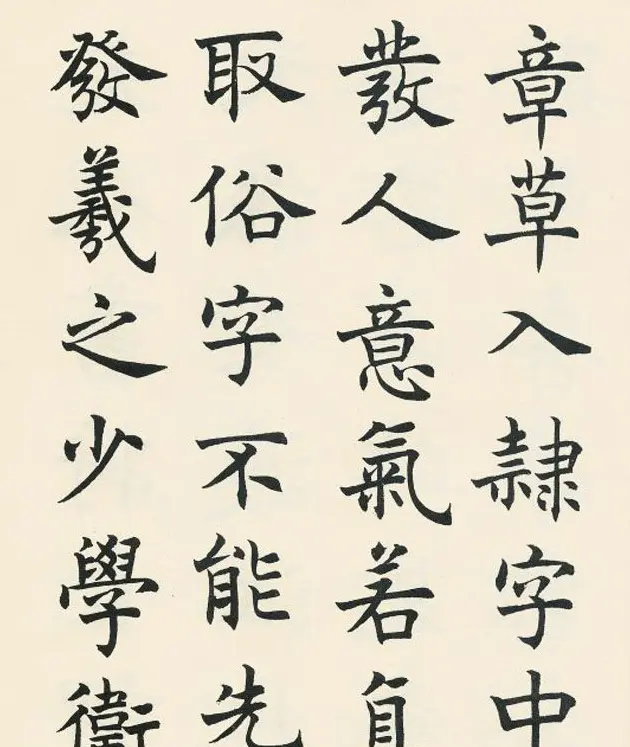 章草入隸字中
發人意氣若自
取俗字不能先
發羲之少學衛